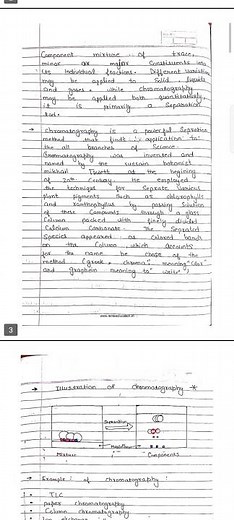 Component mixture of trace,
minor or major constituents into
its individual fractions. Different variation
may be applied to solid, liquids
and gases. while chromatography
may be applied both quantitatively
it is primarily a separation
tool.
→ chromatography is a powerful sepration
method that finds application to
the all branches of science.
chromatography was invented and
named by the russian botanist
mikhail Tswett at the begining
of 20th Century. He employed
the technique for seprate various
plant pigments such as chlorophylls
and xanthophyllus by passing solution
of these compounds through a glass
Column packed with finely divided
Calcium Carbonate. The Seprated
Species appeared as Colored bands
on the Column which accounts
for the name he chose of the
method (Greek chroma meaning "Color"
and graphein meaning to "write")
3
→ Illustration of chromatography
Separation
Mixture
Components
→ Example of chromatography :
TLC
paper chromatography
Column chromatography